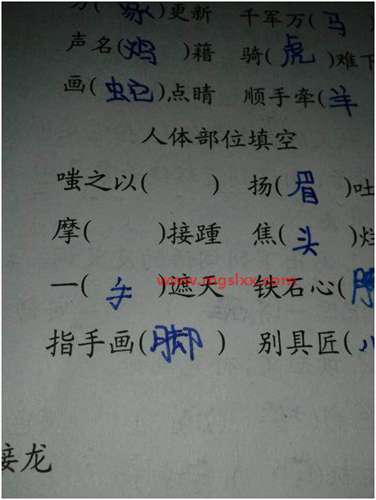 )更新 千军万(马)
声名(鸡)藉 骑(虎)难下
画(蛇)点睛 顺手牵(羊
人体部位填空
嗤之以( ) 扬(眉)吐
摩( )接踵 焦(头)烂
一(手)遮天 铁石心(
指手画(脚) 别具匠(
接龙